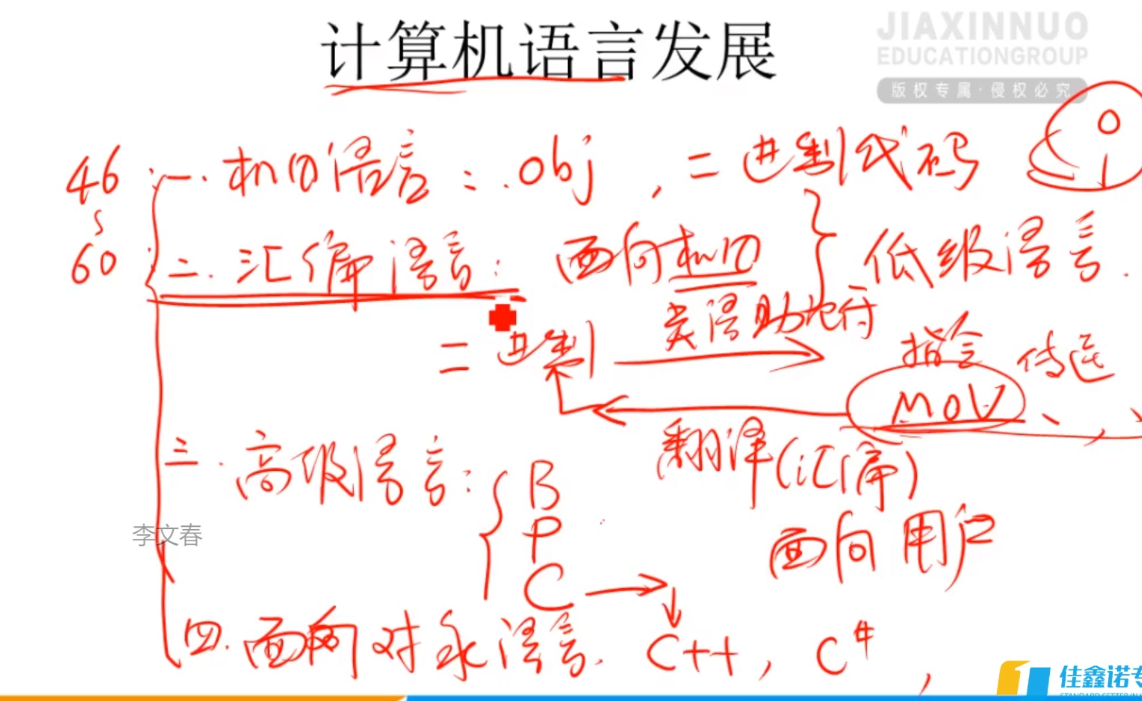 计算机语言发展
JIAXINNUO
EDUCATIONGROUP
版权专属·侵权必究
46 一.机四语言:.obj,二进制代码
~
60 二.汇编语言:面向机四 } 低级语言.
二进制 英语助记符 指令 传送
MOV
翻译(汇编)
三.高级语言: B
P
C
面向用户
李文春
四.面向对象语言. C++, C#,
佳鑫诺专